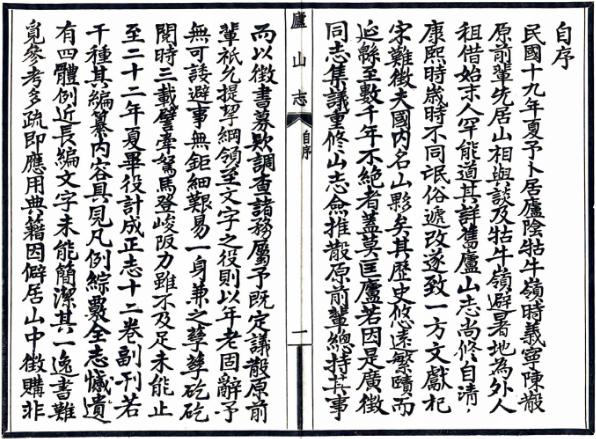 自序
民國十九年夏予卜居廬陰牯牛嶺時義寧陳散
原前輩先居山相與談及牯牛嶺避暑地為外人
租借始末人罕能道其詳舊廬山志尚修自清
康熙時歲時不同氓俗遞改遂致一方文獻杞
宋難徵夫國內名山夥矣其歷史悠遠繁賾而
延緜至數千年不絕者蓋莫匡廬若因是廣徵
同志集議重修山志僉推散原前輩總持其事
廬山志
自序
一
而以徵書募欵調查諸務屬予既定議散原前
輩祇允提挈綱領至文字之役則以年老固辭予
無可諉避事無鉅細艱易一身兼之孳孳矻矻
閱時三載譬牽駑馬登峻阪力雖不及足未能止
至二十二年夏畢役計成正志十二卷副刊若
干種其編纂內容具見凡例綜覈全志憾遺
有四體例近長編文字未能簡潔其一逸書難
覓參考多疏即應用典籍因僻居山中徵購非